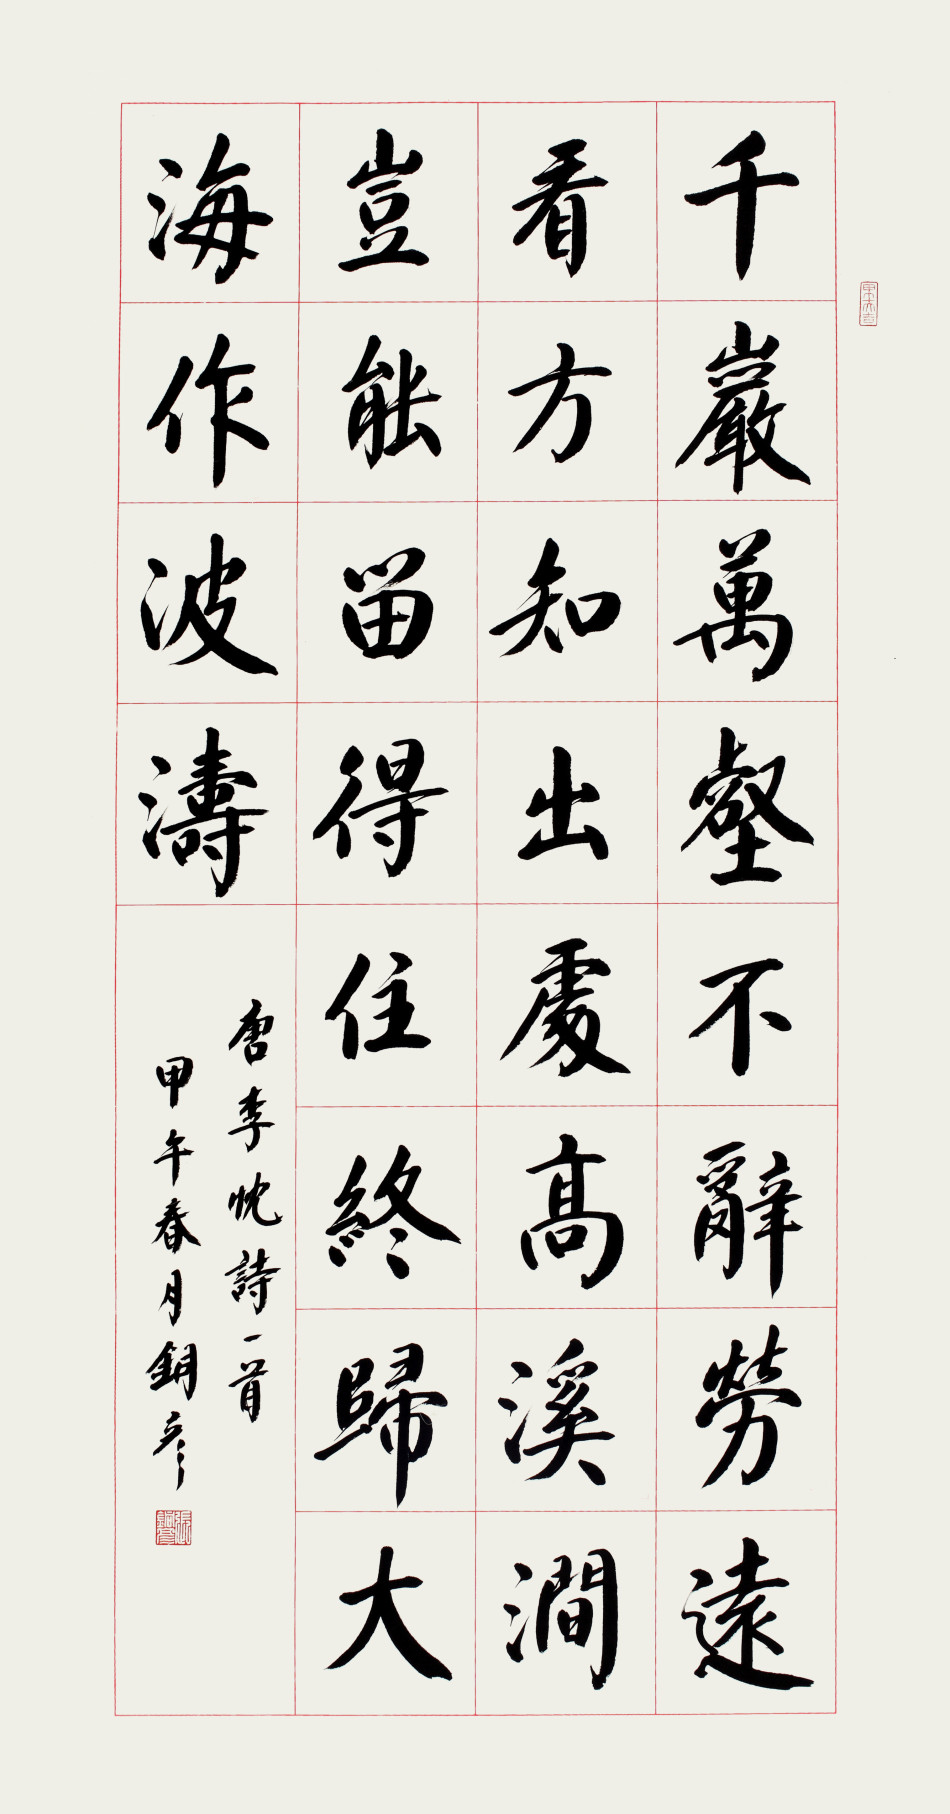 千巖萬壑不辭勞遠
看方知出處高溪澗
豈能留得住終歸大
海作波濤
唐李忱詩一首
甲午春月鋼彥